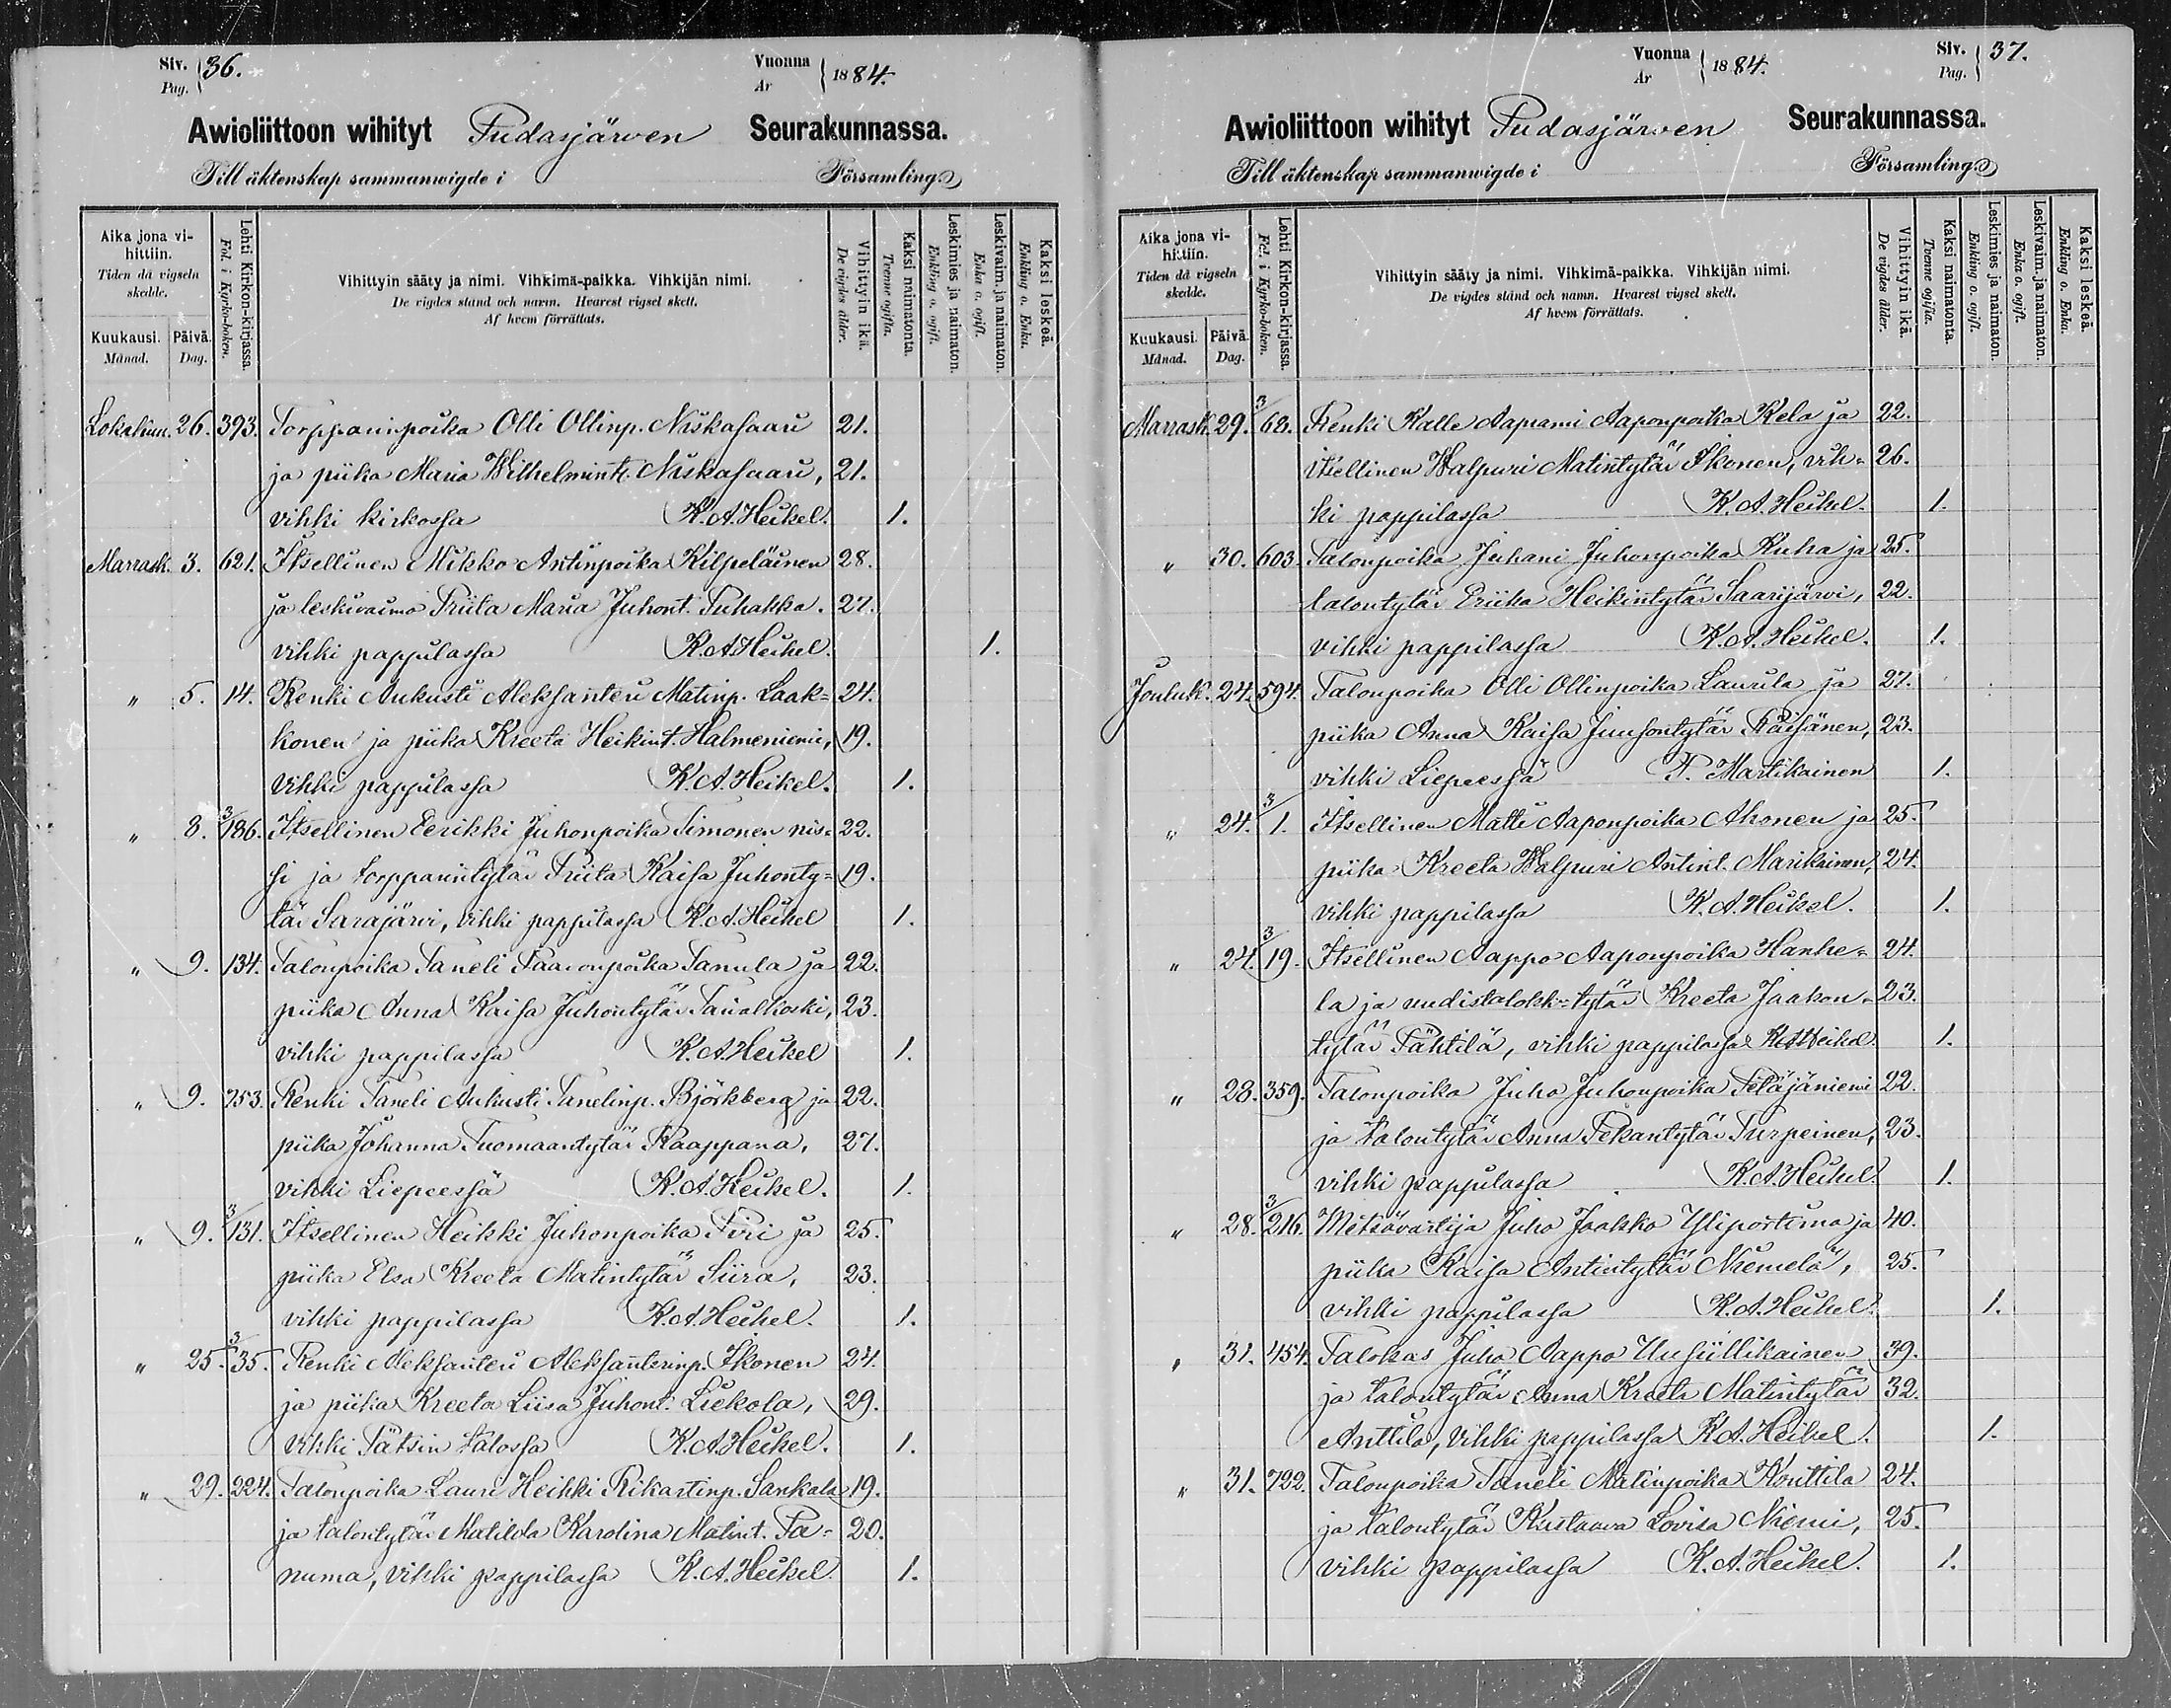 Siv. 36.
Pag.
Vuonna 1884.
Ar
Awioliittoon wihityt Pudasjärwen Seurakunnassa.
Till äktenskap sammanwigde i Församling.
Aika jona vihittiin.
Tiden då vigseln skedde.
Kuukausi. Månad.
Päivä. Dag.
Lehti Kirkon-kirjassa.
Fol. i Kyrko-boken.
Vihittyin sääty ja nimi. Vihkimä-paikka. Vihkijän nimi.
De vigdes stånd och namn. Hvarest vigsel skett.
Af hvem förrättats.
Vihittyin ikä.
De vigdes ålder.
Kaksi naimatonta.
Tvenne ogifta.
Leskimies ja naimaton.
Enkling o. ogift.
Leskivaim. ja naimaton.
Enka o. ogift.
Kaksi leskeä.
Enkling o. Enka.
Lokakuu. 26. 393. Torpparinpoika Olli Ollinp. Niskasaari 21.
ja piika Maria Wilhelmint. Niskasaari, 21.
vihki kirkossa K. A. Heikel. 1.
Marrask. 3. 621. Itsellinen Mikko Antinpoika Kilpeläinen 28.
ja leskivaimo Priita Maria Juhont. Puhakka. 27.
vihki pappilassa K. A. Heikel. 1.
" 5. 14. Renki Aukusti Aleksanteri Matinp. Laak= 24.
konen ja piika Kreeta Heikint. Halmeniemi, 19.
vihki pappilassa K. A. Heikel. 1.
" 8. 3/186. Itsellinen Eerikki Juhonpoika Timonen nis= 22.
si ja torpparintytär Priita Kaisa Juhonty= 19.
tär Sarajärvi, vihki pappilassa K. A. Heikel 1.
" 9. 134. Talonpoika Taneli Paavonpoika Tanula ja 22.
piika Anna Kaisa Juhontytär Taivalkoski, 23.
vihki pappilassa K. A. Heikel 1.
" 9. 753. Renki Taneli Aukusti Tanelinp. Björkberg ja 22.
piika Johanna Tuomaantytär Raappana, 27.
vihki Liepeessä K. A. Heikel. 1.
" 9. 3/131. Itsellinen Heikki Juhonpoika Piri ja 25.
piika Elsa Kreeta Matintytär Siira, 23.
vihki pappilassa K. A. Heikel. 1.
" 25. 3/35. Renki Aleksanteri Aleksanterinp. Ikonen 24.
ja piika Kreeta Liisa Juhont. Liekola, 29.
vihki Pätsin talossa K. A. Heikel. 1.
" 29. 224. Talonpoika Lauri Heikki Rikartinp. Sankala 19.
ja talontytär Matilda Karolina Matint. Pa= 20.
numa, vihki pappilassa K. A. Heikel. 1.
Vuonna 1884.
Ar
Siv. 37.
Pag.
Awioliittoon wihityt Pudasjärven Seurakunnassa.
Till äktenskap sammanwigde i Församling.
Aika jona vihittiin.
Tiden då vigseln skedde.
Kuukausi. Månad.
Päivä. Dag.
Lehti Kirkon-kirjassa.
Fol. i Kyrko-boken.
Vihittyin sääty ja nimi. Vihkimä-paikka. Vihkijän nimi.
De vigdes stånd och namn. Hvarest vigsel skett.
Af hvem förrättats.
Vihittyin ikä.
De vigdes ålder.
Kaksi naimatonta.
Tvenne ogifta.
Leskimies ja naimaton.
Enkling o. ogift.
Leskivaim. ja naimaton.
Enka o. ogift.
Kaksi leskeä.
Enkling o. Enka.
Marrask. 29. 3/68. Renki Kalle Aaprami Aaponpoika Kela ja 22.
itsellinen Walpuri Matintytär Ikonen, vih= 26.
ki pappilassa K. A. Heikel. 1.
" 30. 603. Talonpoika Juhani Juhonpoika Kuha ja 25.
talontytär Eriika Heikintytär Saarijärvi, 22.
vihki pappilassa K. A. Heikel. 1.
Jouluk. 24. 594. Talonpoika Olli Ollinpoika Laurila ja 27.
piika Anna Kaisa Juusontytär Räisänen, 23.
vihki Liepeessä F. Martikainen 1.
" 24. 3/1. Itsellinen Matti Aaponpoika Ahonen ja 25.
piika Kreeta Walpuri Antint. Marikainen, 24.
vihki pappilassa K. A. Heikel. 1.
" 24. 3/19. Itsellinen Aappo Aaponpoika Hanhe= 24.
la ja uudistalokk=tytär Kreeta Jaakon= 23.
tytär Pähtilä, vihki pappilassa K. A. Heikel 1.
" 28. 359. Talonpoika Juho Juhonpoika Petäjäniemi 22.
ja talontytär Anna Pekantytär Turpeinen, 23.
vihki pappilassa K. A. Heikel. 1.
" 28. 3/216. Metsävartija Juho Jaakko Yliportimo ja 40.
piika Kaisa Antintytär Niemelä, 25.
vihki pappilassa K. A. Heikel. 1.
" 31. 454. Talokas Juho Aappo Uusiillikainen 39.
ja talontytär Anna Kreeta Matintytär 32.
Anttila, vihki pappilassa K. A. Heikel. 1.
" 31. 722. Talonpoika Taneli Matinpoika Kouttila 24.
ja talontytär Kustaava Lovisa Niemi, 25.
vihki pappilassa K. A. Heikel. 1.